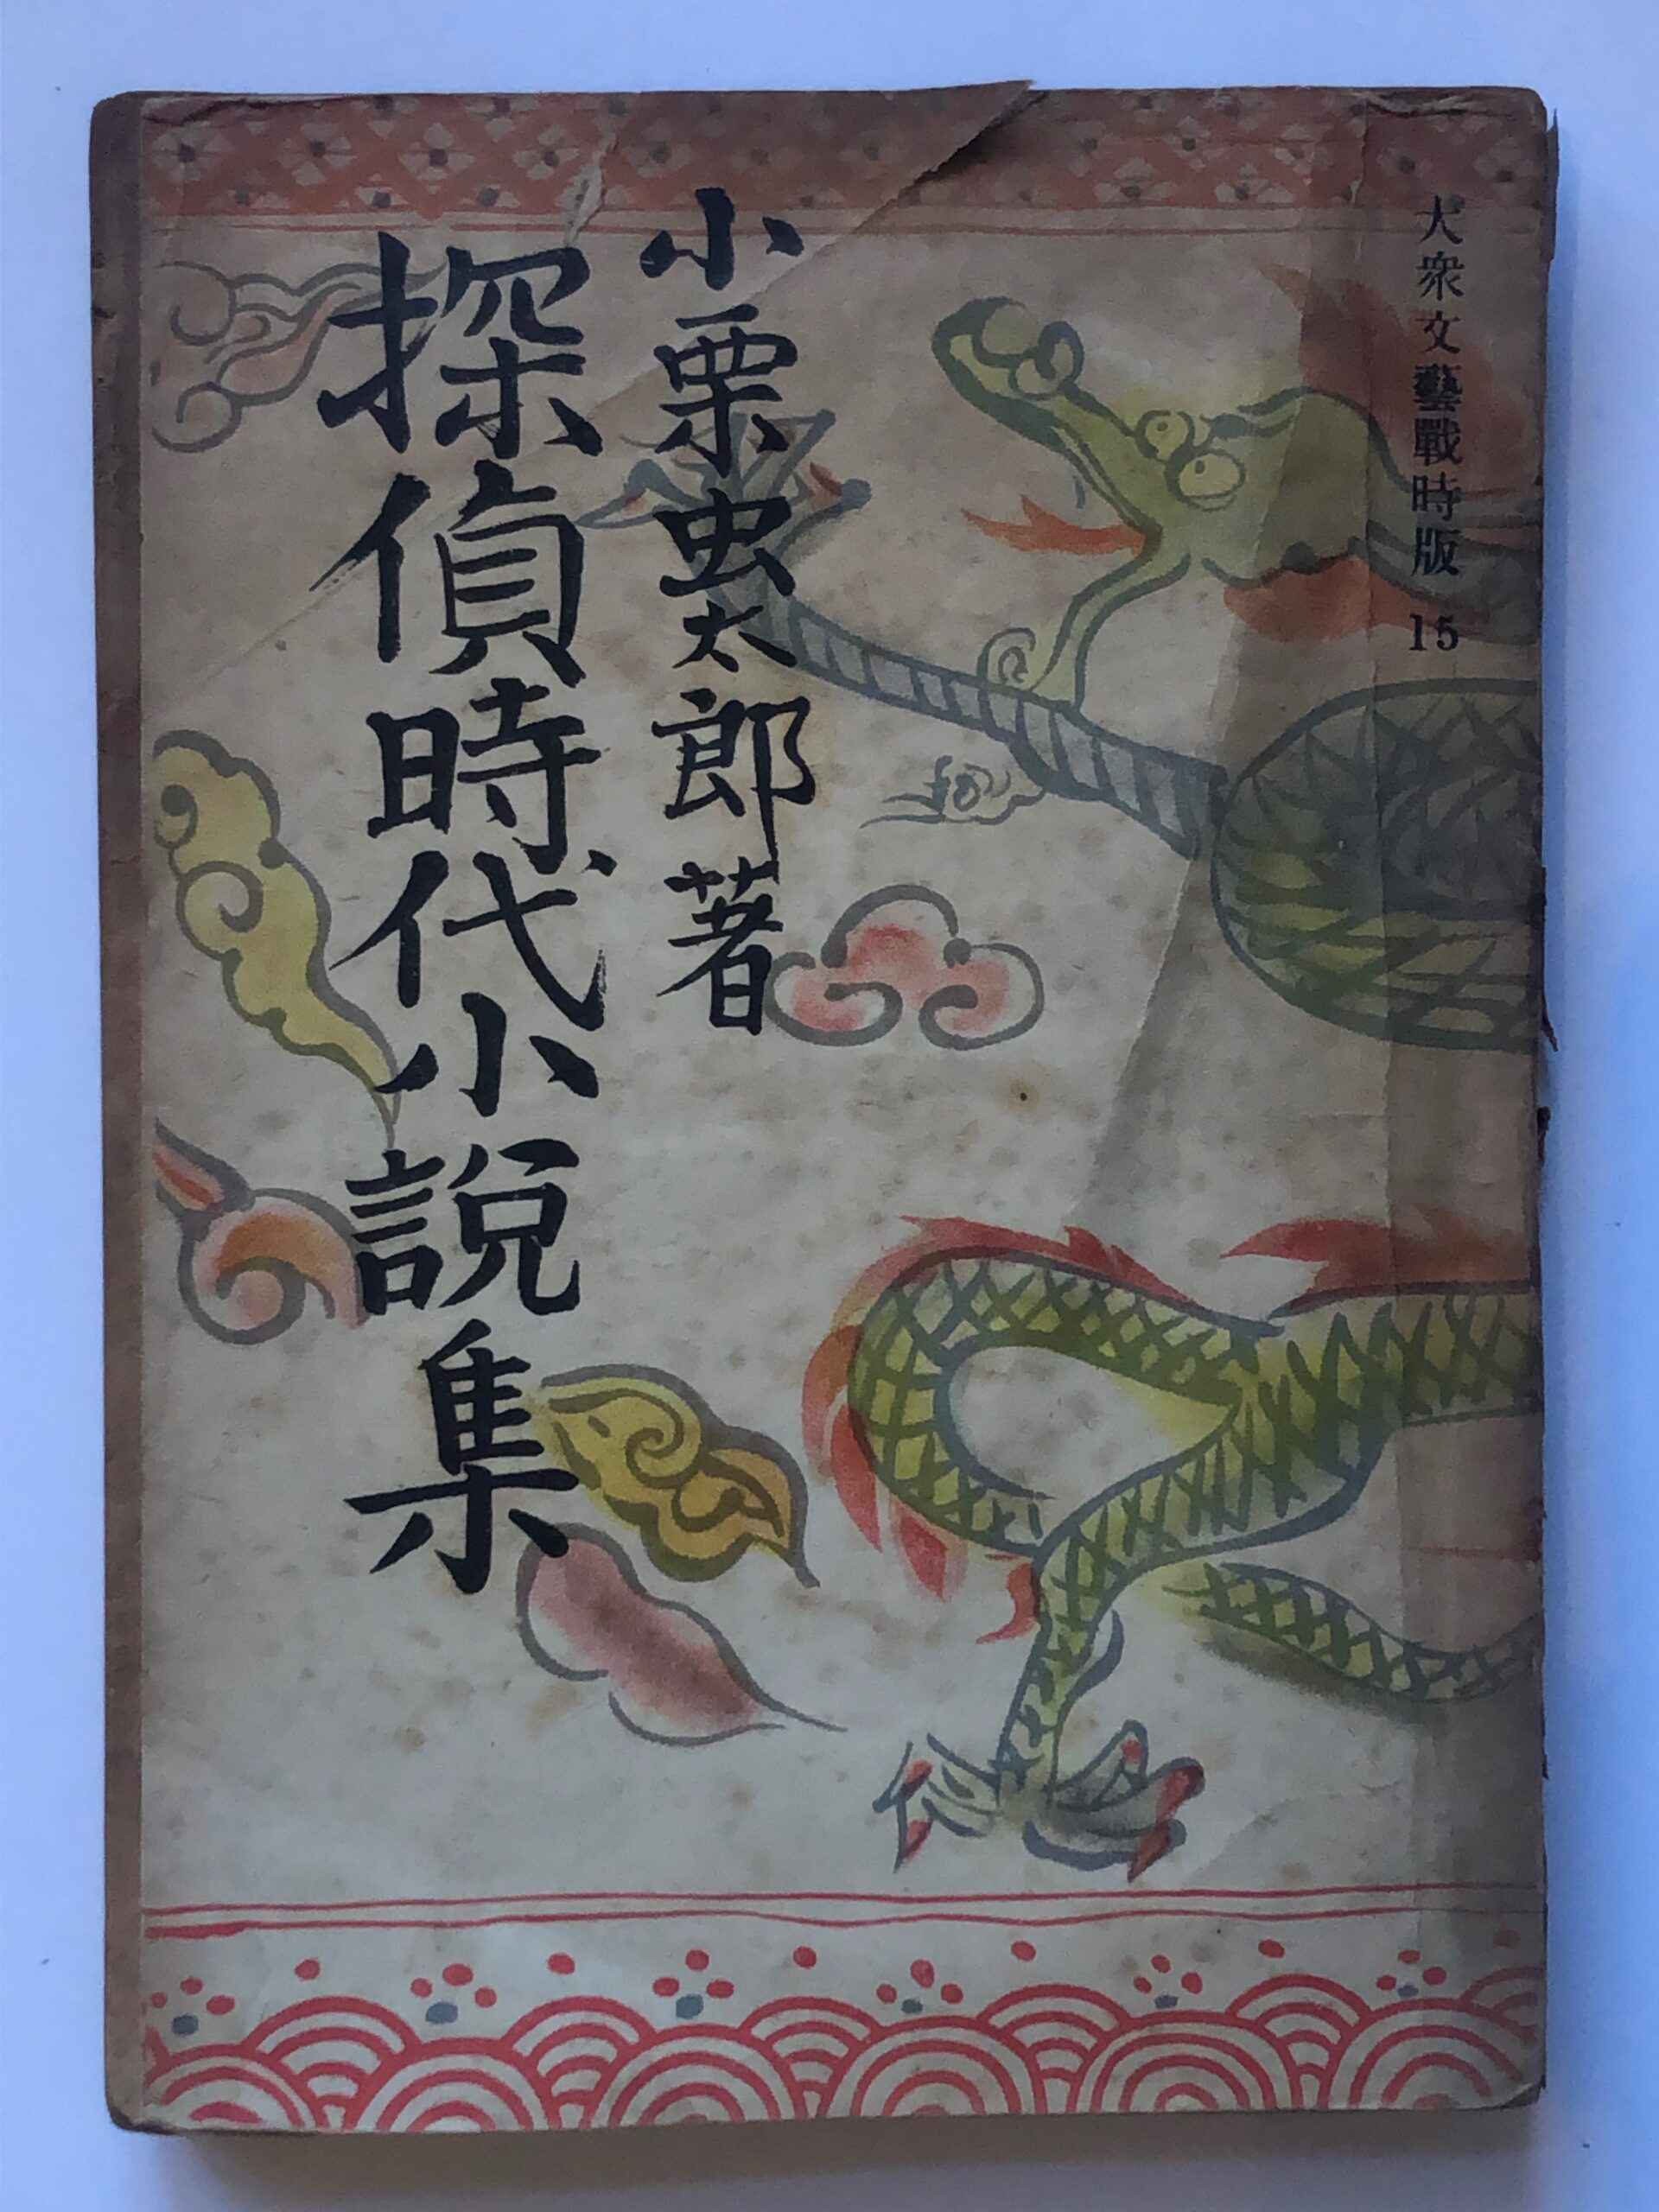 大衆文藝戰時版 15
小栗虫太郎著
探偵時代小說集